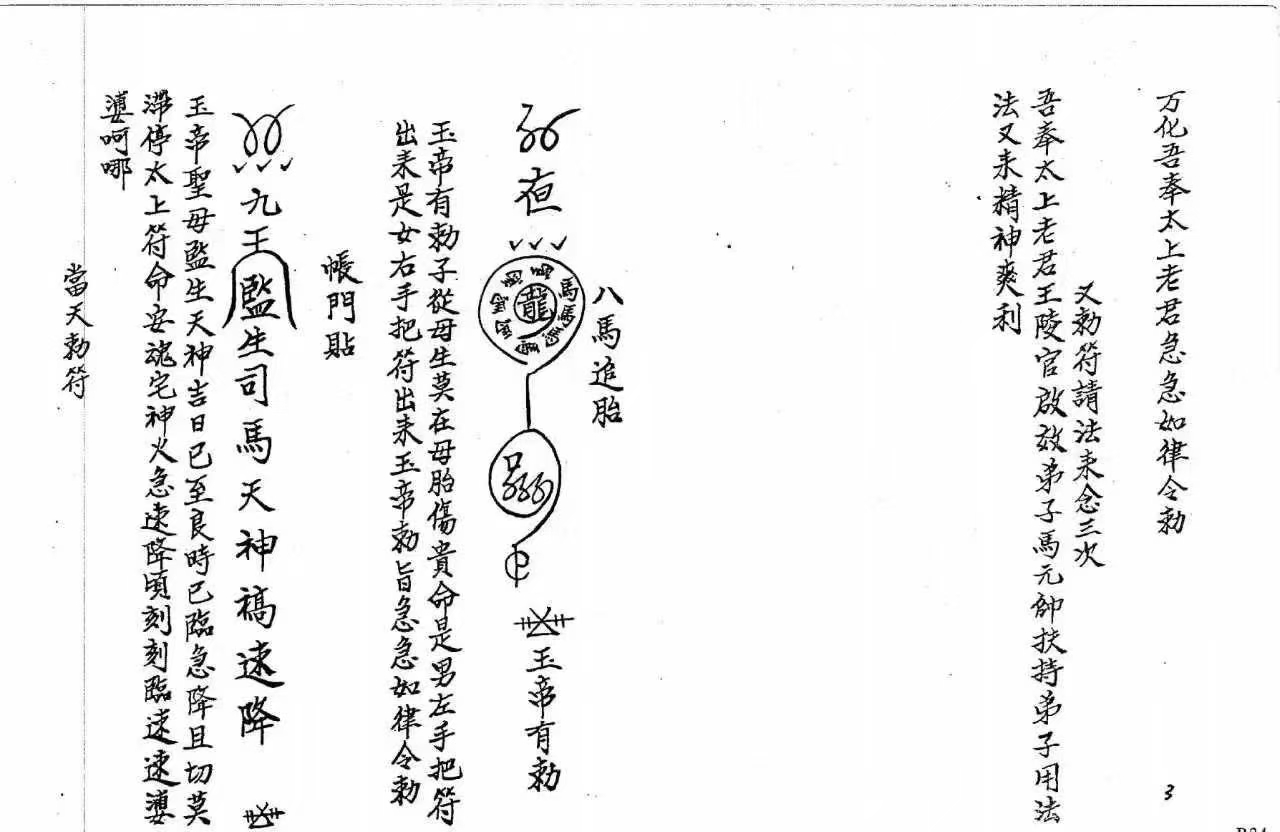 万化吾奉太上老君急急如律令勅
又勅符請法来念三次
吾奉太上老君王陵官啟效弟子馬元帥扶持弟子用法
法又来精神爽利
八馬追胎
龍
玉帝有勅
玉帝有勅子從母生莫在母胎傷貴命是男左手把符
出来是女右手把符出来玉帝勅旨急急如律令勅
帳門貼
九王監生司馬天神禍速降
玉帝聖母監生天神吉日已至良時已臨急降且切莫
滯停太上符命安魂宅神火急速降頃刻刻臨速速
呵哪
當天勅符
3